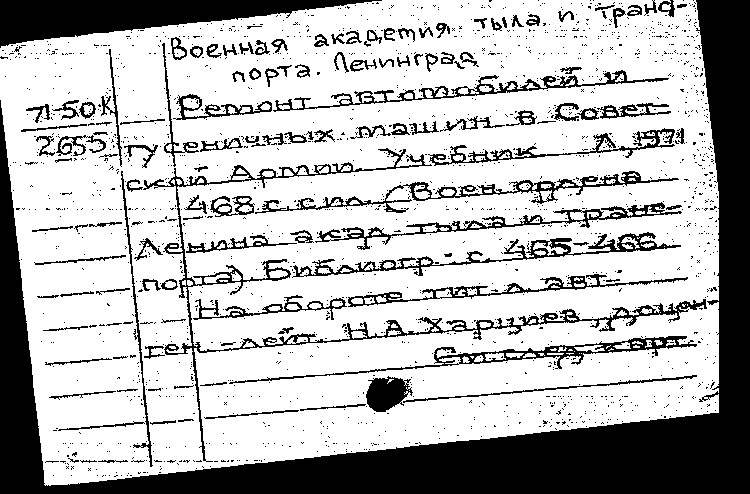 Военная академия тыла и транс-
порта. Ленинград
71-50К Ремонт автомобилей и
2655 гусеничных машин в Совет-
ской Армии. Учебник Л., 1971.
468 с. с ил. (Воен. ордена
Ленина акад. тыла и транс-
порта). Библиогр.: с. 465-466.
На обороте тит. л. авт.:
ген.-лейт. Н.А. Харциев, доцен-
См. след. карт.